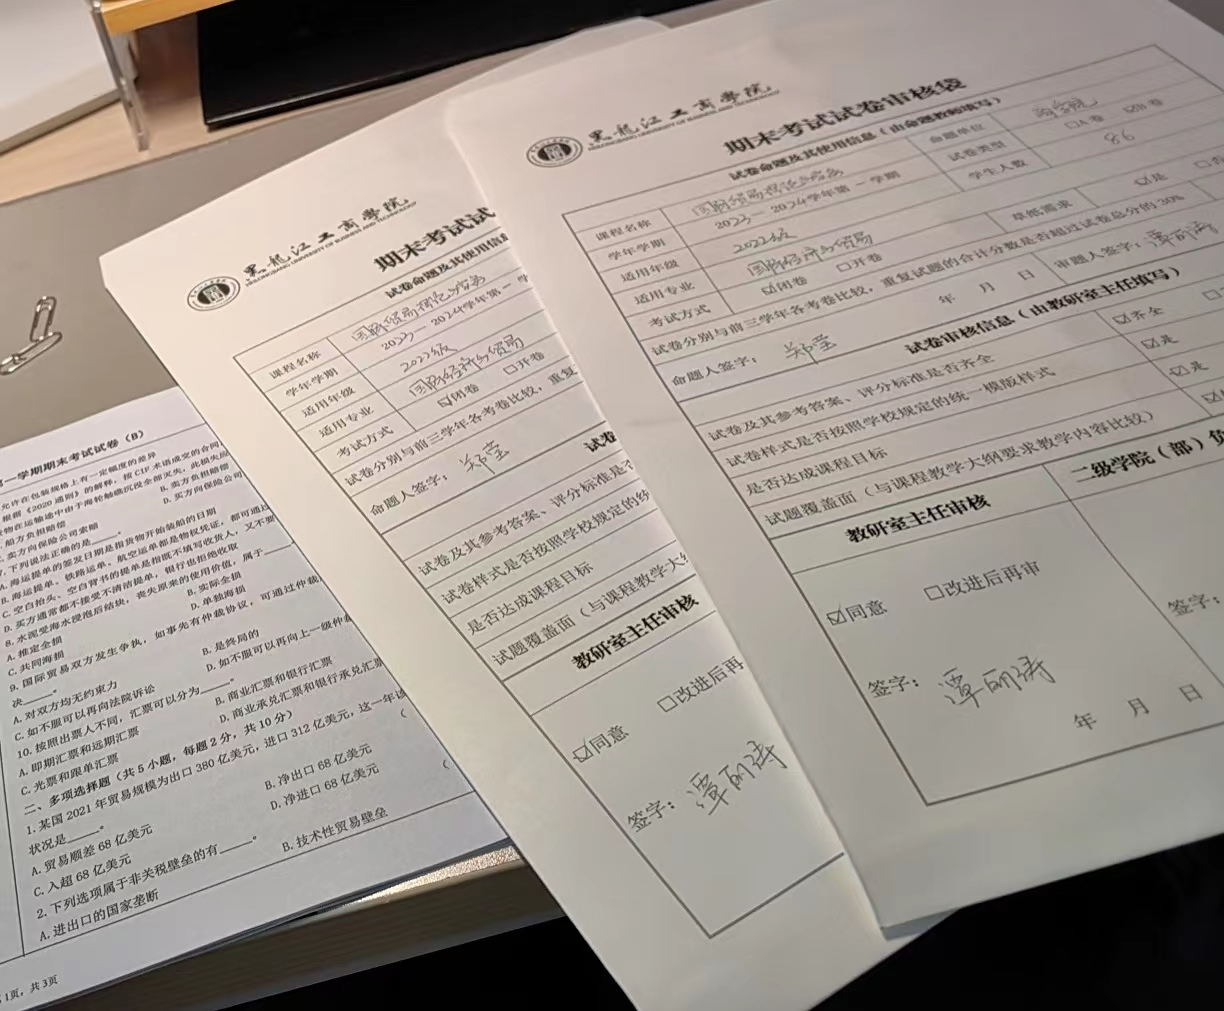 第一学期期末考试试卷（B）
允许在包装规格上有一定幅度的差异
根据《2020通则》的解释，按CIF术语成交的合同
货物在运输途中由于海轮触礁沉没全部灭失，此损失
船方负担赔偿
B. 卖方负担赔偿
卖方向保险公司索赔
D. 买方向保险公司
7. 下列说法正确的是____。
A. 海运提单的签发日期是指货物开始装船的日期
B. 海运提单、铁路运单、航空运单都是物权凭证，都可通过
C. 空白抬头、空白背书的提单是指既不填写收货人，又不要
D. 买方通常都不接受不清洁提单，银行也拒绝收取
8. 水泥受海水浸泡后结块，丧失原来的使用价值，属于____
A. 推定全损
B. 实际全损
C. 共同海损
D. 单独海损
9. 国际贸易双方发生争执，如事先有仲裁协议，可通过仲裁
决____。
A. 对双方均无约束力
B. 是终局的
C. 如不服可以再向法院诉讼
D. 如不服可以再向上一级仲裁
10. 按照出票人不同，汇票可以分为____。
A. 即期汇票和远期汇票
B. 商业汇票和银行汇票
C. 光票和跟单汇票
D. 商业承兑汇票和银行承兑汇票
二、多项选择题（共5小题，每题2分，共10分）
1. 某国2021年贸易规模为出口380亿美元，进口312亿美元，这一年该
状况是____。
（
A. 贸易顺差68亿美元
B. 净出口68亿美元
C. 入超68亿美元
D. 净进口68亿美元
2. 下列选项属于非关税壁垒的有____。
（
A. 进出口的国家垄断
B. 技术性贸易壁垒
1页，共3页
黑龙江工商学院
HEILONGJIANG UNIVERSITY OF BUSINESS AND TECHNOLOGY
期末考试试
试卷命题及其使用信息
课程名称 国际贸易理论与实务
学年学期 2023—2024学年第一学
适用年级 2022级
适用专业 国际经济与贸易
考试方式 ☑闭卷 □开卷
试卷分别与前三学年各考卷比较，重复
命题人签字：郑莹
试卷
试卷及其参考答案、评分标准是否
试卷样式是否按照学校规定的统
是否达成课程目标
试题覆盖面（与课程教学大纲
教研室主任审核
☑同意 □改进后再
签字：谭丽涛
黑龙江工商学院
HEILONGJIANG UNIVERSITY OF BUSINESS AND TECHNOLOGY
期末考试试卷审核袋
试卷命题及其使用信息（由命题教师填写）
课程名称 国际贸易理论与实务 命题单位 商学院
学年学期 2023—2024学年第一学期 试卷类型 □A卷 ☑B卷
适用年级 2022级 学生人数 86
适用专业 国际经济与贸易 草纸需求 ☑是
考试方式 ☑闭卷 □开卷
试卷分别与前三学年各考卷比较，重复试题的合计分数是否超过试卷总分的20%
命题人签字：郑莹 年 月 日 审题人签字：谭丽涛
试卷审核信息（由教研室主任填写）
试卷及其参考答案、评分标准是否齐全 ☑齐全
试卷样式是否按照学校规定的统一模版样式 ☑是
是否达成课程目标 ☑是
试题覆盖面（与课程教学大纲要求教学内容比较）
教研室主任审核 二级学院（部）负
☑同意 □改进后再审
签字：谭丽涛 签字：
年 月 日